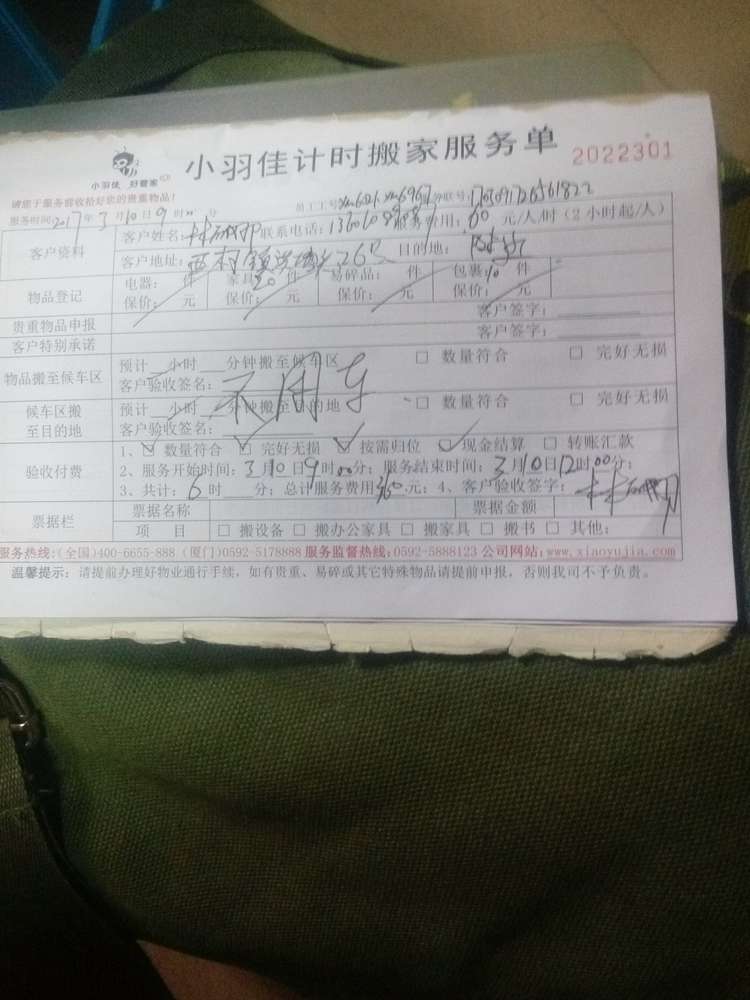 小羽佳 好管家
小羽佳计时搬家服务单 2022301
请您于服务前收拾好您的贵重物品!
服务时间:2017年3月10日9时 分 员工工号 单联号:
客户资料 客户姓名: 联系电话: 服务费用:60元/人/时(2小时起/人)
客户地址: 目的地:
物品登记 电器: 件 家具20件 易碎品: 件 包裹10件
保价: 元 保价: 元 保价: 元 保价: 元
贵重物品申报 客户签字:
客户特别承诺 客户签字:
物品搬至候车区 预计 小时 分钟搬至候车区 □ 数量符合 □ 完好无损
客户验收签名: 不用车
候车区搬至目的地 预计 小时 分钟搬至目的地 □ 数量符合 □ 完好无损
客户验收签名:
验收付费 1、☑ 数量符合 ☑ 完好无损 ☑ 按需归位 ☑ 现金结算 □ 转账汇款
2、服务开始时间:3月10日9时00分;服务结束时间:3月10日12时00分;
3、共计:6时 分;总计服务费用360元;4、客户验收签字:
票据栏 票据名称 票据金额
项 目 □ 搬设备 □ 搬办公家具 □ 搬家具 □ 搬书 □ 其他:
服务热线:(全国)400-6655-888 (厦门)0592-5178888 服务监督热线:0592-5888123 公司网站:www.xiaoyujia.com
温馨提示:请提前办理好物业通行手续,如有贵重、易碎或其它特殊物品请提前申报,否则我司不予负责。